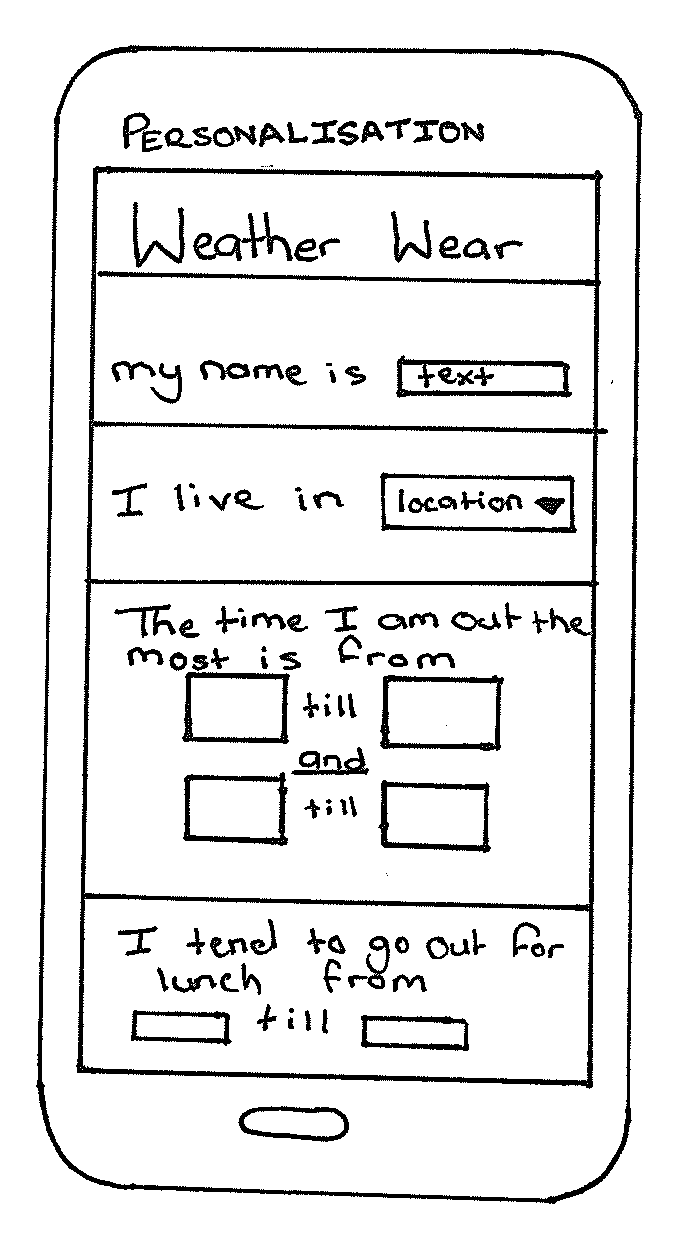 PERSONALISATION
Weather Wear
my name is text
I live in location
The time I am out the
most is from
till
and
till
I tend to go out for
lunch from
till